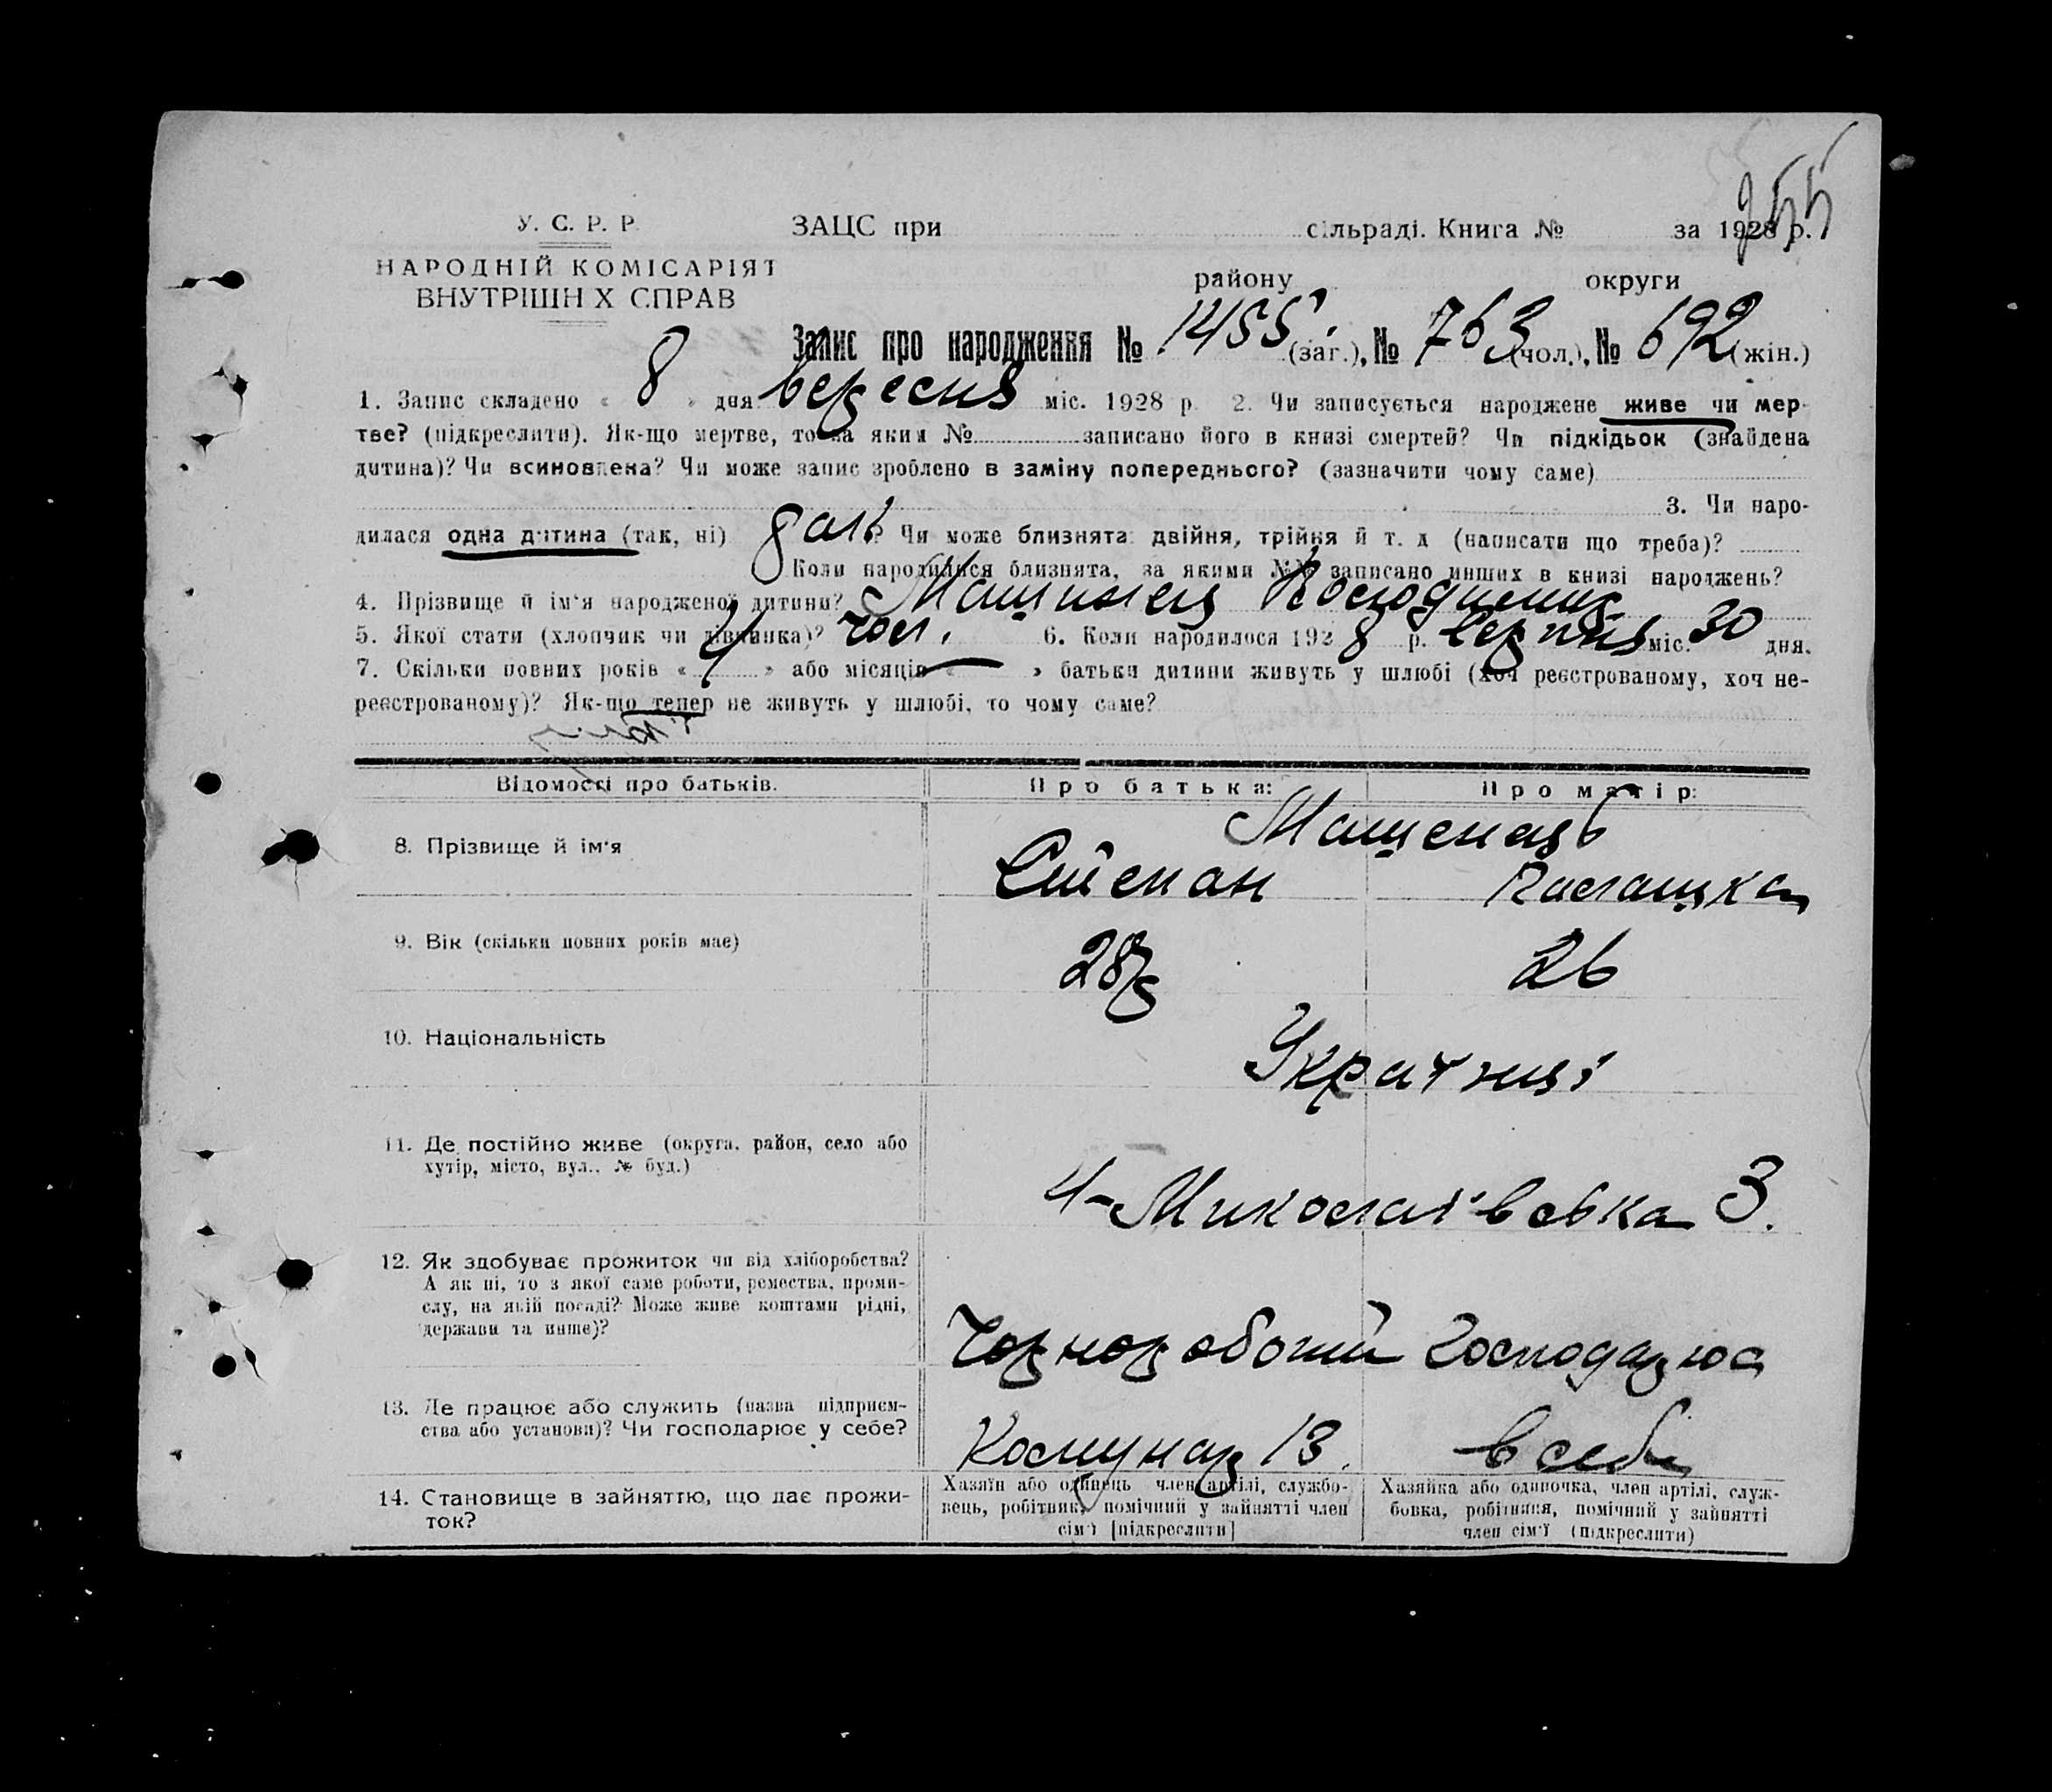 255
У. С. Р. Р.
ЗАЦС при сільраді. Книга № за 1928 р.
НАРОДНІЙ КОМІСАРІЯТ
ВНУТРІШН Х СПРАВ
району округи
Запис про народження № 1455 (заг.), № 763 (чол.), № 692 (жін.)
1. Запис складено « 8 » дня вересня міс. 1928 р. 2. Чи записується народжене живе чи мер-
тве? (підкреслити). Як-що мертве, то за яким № записано його в книзі смертей? Чи підкідьок (знайдена
дитина)? Чи всиновлена? Чи може запис зроблено в заміну попереднього? (зазначити чому саме)
3. Чи наро-
дилася одна дитина (так, ні) ? Чи може близнята: двійня, трійня й т. д (написати що треба)?
Коли народилися близнята, за якими №№ записано инших в книзі народжень?
4. Прізвище й ім'я народженої дитини?
5. Якої стати (хлопчик чи дівчинка)? чол. 6. Коли народилося 1928 р. серпня міс. 30 дня.
7. Скільки повних років « 4 » або місяців « — » батьки дитини живуть у шлюбі (хоч реєстрованому, хоч не-
реєстрованому)? Як-що тепер не живуть у шлюбі, то чому саме?
Відомості про батьків. Про батька: Про матір:
8. Прізвище й ім'я
Степан Палашка
9. Вік (скільки повних років має) 28 р 26
10. Національність Українці
11. Де постійно живе (округа, район, село або
хутір, місто, вул., № буд.)
4-Миколаївська 3.
12. Як здобуває прожиток чи від хліборобства?
А як ні, то з якої саме роботи, ремества, проми-
слу, на якій посаді? Може живе коштами рідні,
держави та инше)?
Чорноробочий Господарює
13. Де працює або служить (назва підприєм-
ства або установи)? Чи господарює у себе?
Комунар 13. в себе
14. Становище в зайняттю, що дає прожи-
ток?
Хазяїн або одинець член артілі, службо-
вець, робітник, помічний у зайнятті член
сім'ї [підкреслити]
Хазяйка або одиночка, член артілі, служ-
бовка, робітниця, помічний у зайнятті
член сім'ї (підкреслити)